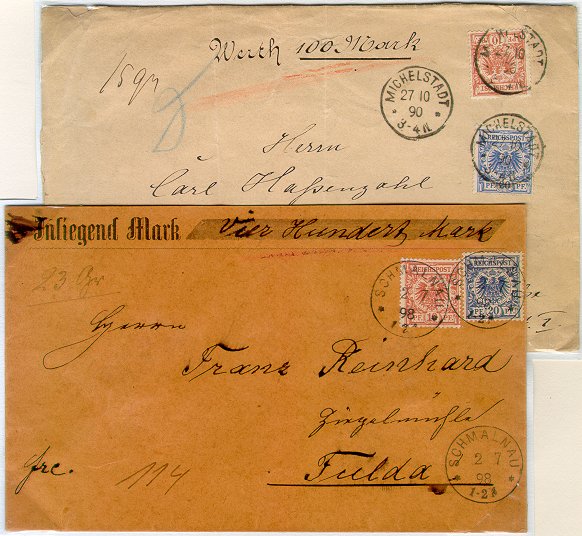 Werth 100 Mark
15 gr
MICHELSTADT
27 10
90
3-4N
MICHELSTADT
REICHSPOST
MICHELSTADT
PF 20 PF
Herrn
Carl Haßenzahl
Inliegend Mark Vier Hundert Mark
23 Gr
REICHSPOST
REICHSPOST
PF 20 PF
SCHMALNAU
2 7
98
1-2N
Herrn
Franz Reinhard
Ziegelmühle
Fulda
frc.
114
SCHMALNAU
2 7
98
1-2N